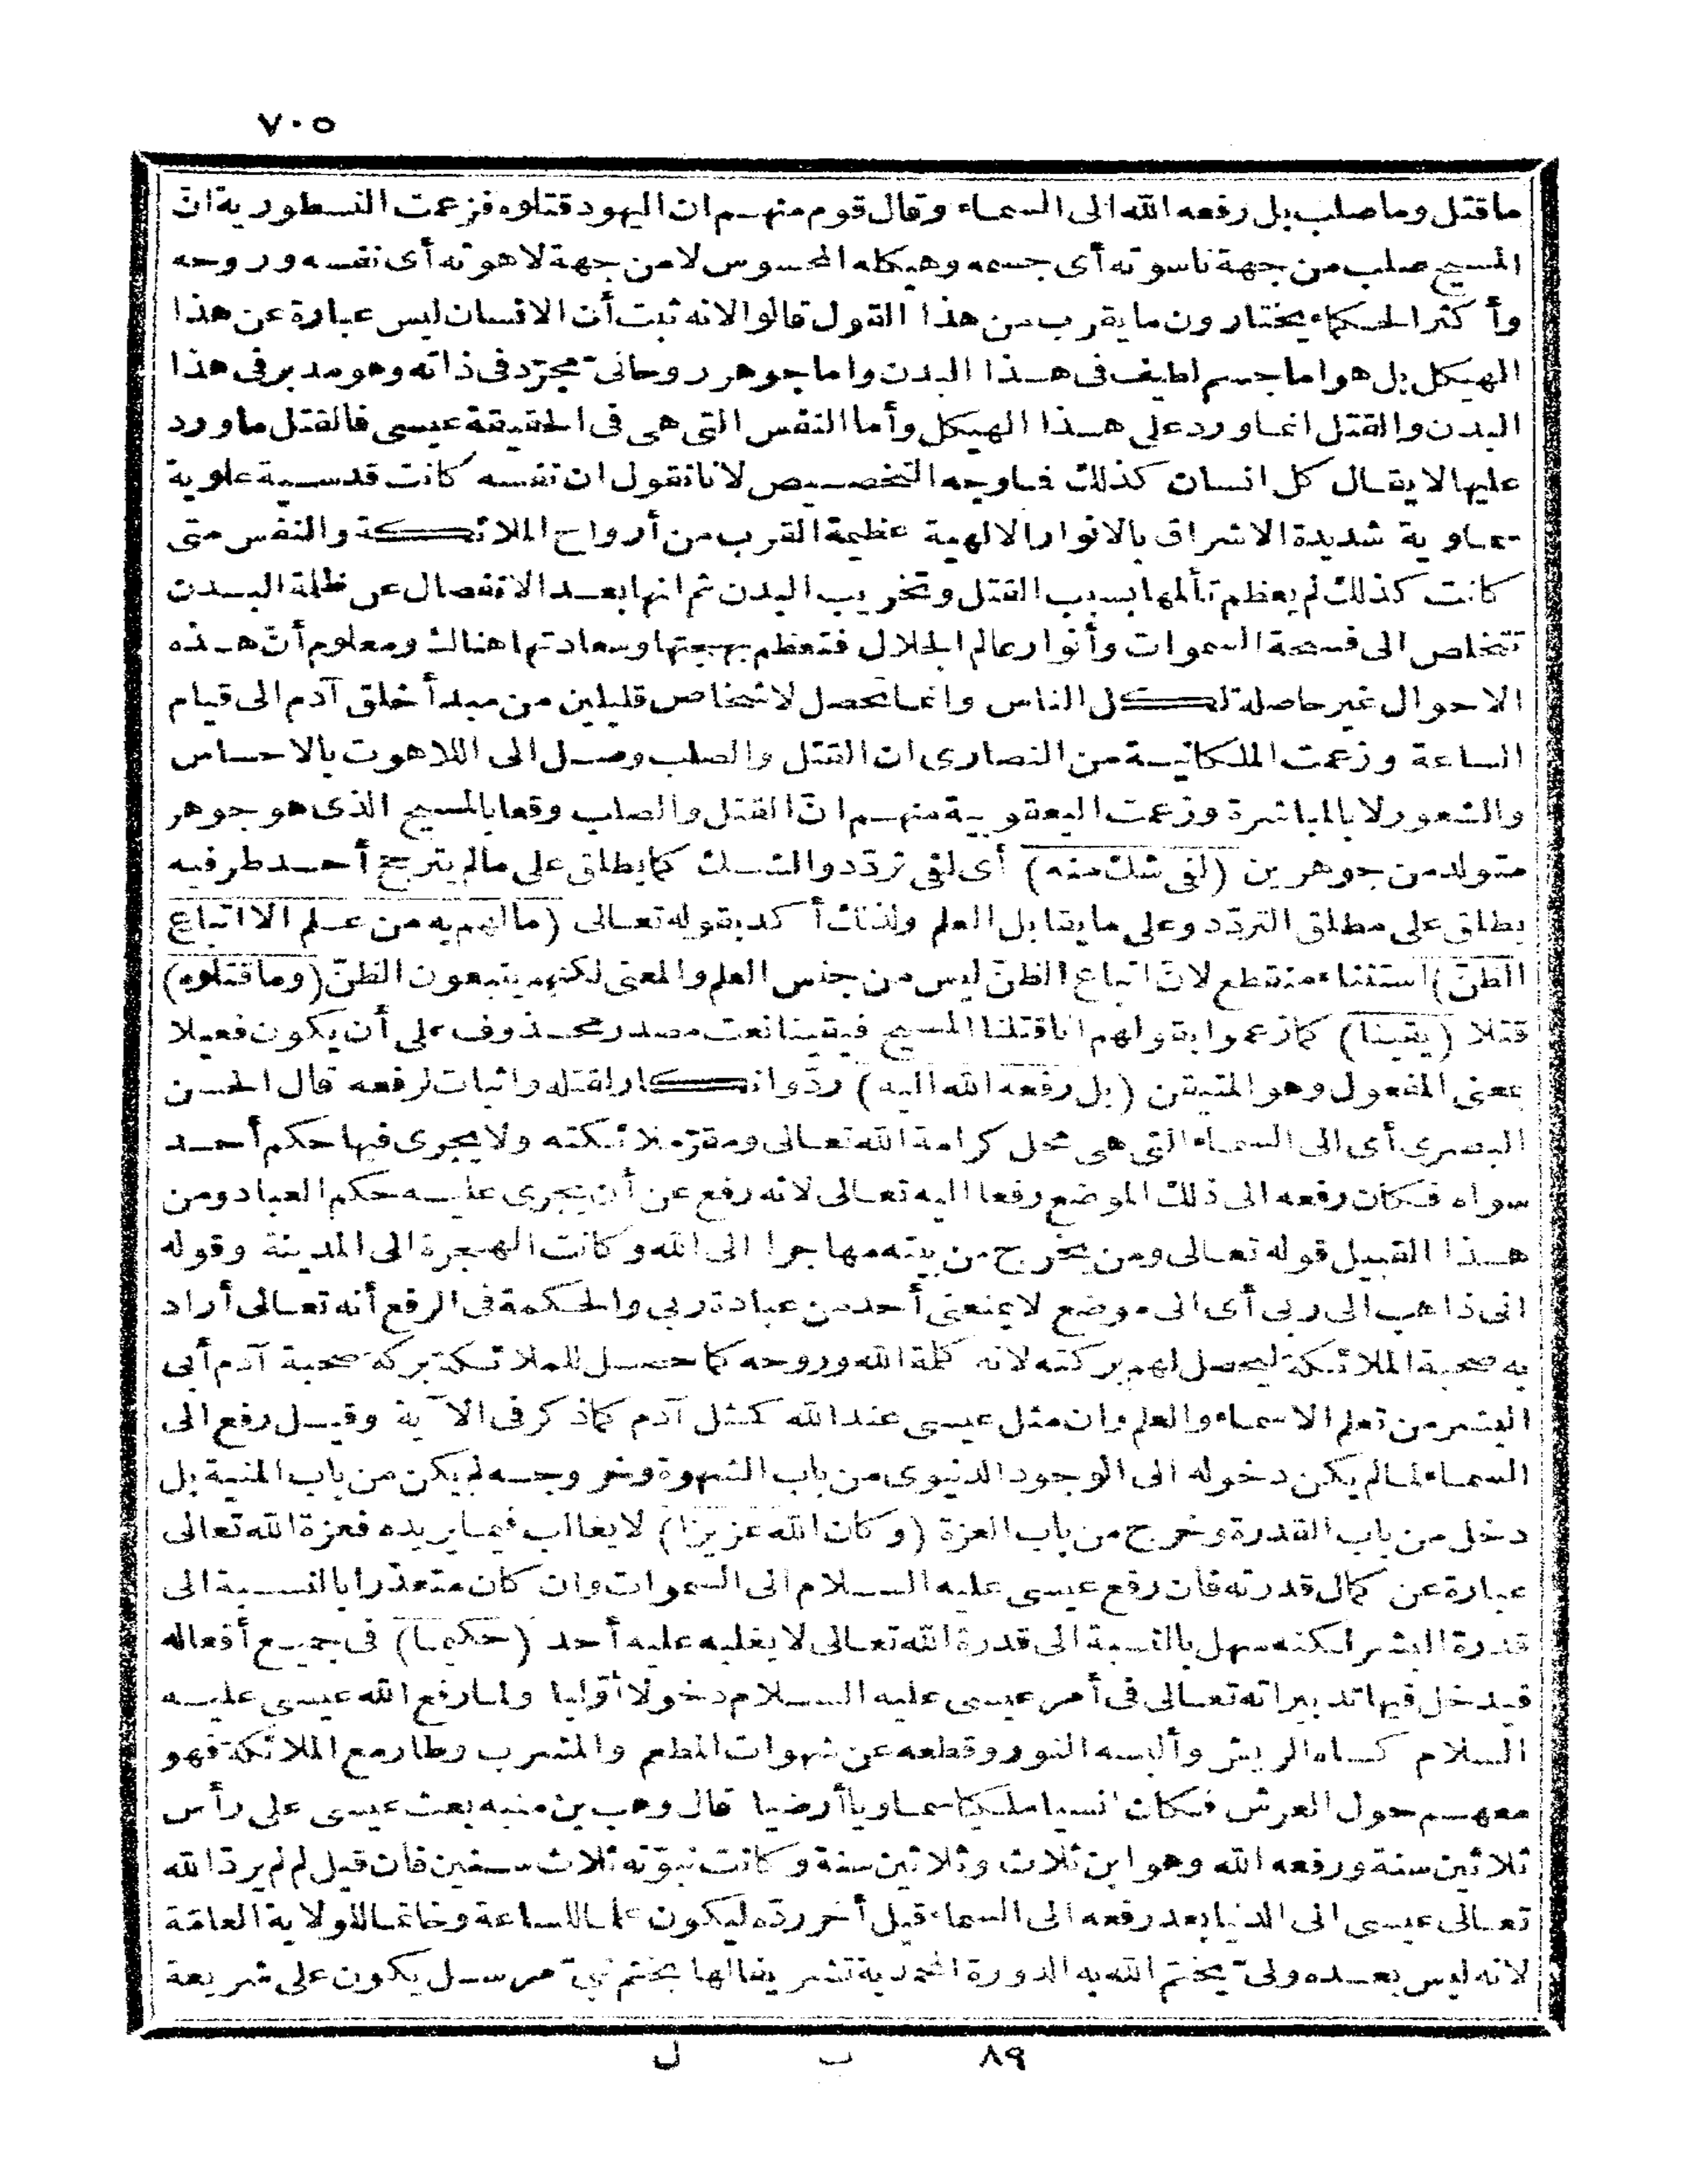 ٧٠٥
ما قتل وما صلب بل رفعه الله الى السماء وقال قوم منهم ان اليهود قتلوه فزعمت النسطورية انّ
المسيح صلب من جهة ناسوته أى جسمه وهيكله المحسوس لا من جهة لاهوته أى نفسه وروحه
وأكثر الحكماء يختارون ما يقرب من هذا القول قالوا لانه ثبت أن الانسان ليس عبارة عن هذا
الهيكل بل هو اما جسم لطيف فى هذا البدن واما جوهر روحانىّ مجرّد فى ذاته وهو مدبر فى هذا
البدن والقتل انما ورد على هذا الهيكل وأما النفس التى هى فى الحقيقة عيسى فالقتل ما ورد
عليها لا يقال كل انسان كذلك فما وجه التخصيص لانا نقول ان نفسه كانت قدسية علوية
سماوية شديدة الاشراق بالانوار الالهية عظيمة القرب من أرواح الملائكة والنفس متى
كانت كذلك لم يعظم تألمها بسبب القتل وتخريب البدن ثم انها بعد الانفصال عن ظلمة البدن
تتخلص الى فسحة السموات وأنوار عالم الجلال فتعظم بهجتها وسعادتها هناك ومعلوم أنّ هذه
الاحوال غير حاصلة لكل الناس وانما تحصل لاشخاص قليلين من مبدأ خلق آدم الى قيام
الساعة وزعمت الملكانية من النصارى ان القتل والصلب وصل الى اللاهوت بالاحساس
والشعور لا بالمباشرة وزعمت اليعقوبية منهم انّ القتل والصلب وقعا بالمسيح الذى هو جوهر
متولد من جوهرين (لفى شك منه) أى لفى تردّد والشك كما يطلق على ما لم يترجح أحد طرفيه
يطلق على مطلق التردّد وعلى ما يقابل العلم ولذلك أكد بقوله تعالى (ما لهم به من علم الا اتباع
الظنّ) استثناء منقطع لانّ اتباع الظنّ ليس من جنس العلم والمعنى لكنهم يتبعون الظنّ (وما قتلوه)
قتلا (يقينا) كما زعموا بقولهم انا قتلنا المسيح فيقينا نعت مصدر محذوف على أن يكون فعيلا
بمعنى المفعول وهو المتيقن (بل رفعه الله اليه) ردّ وانكار لقتله واثبات لرفعه قال الحسن
البصرى أى الى السماء التى هى محل كرامة الله تعالى ومقرّ ملائكته ولا يجرى فيها حكم أحد
سواه فكان رفعه الى ذلك الموضع رفعا اليه تعالى لانه رفع عن أن يجرى عليه حكم العباد ومن
هذا القبيل قوله تعالى ومن يخرج من بيته مهاجرا الى الله وكانت الهجرة الى المدينة وقوله
انى ذاهب الى ربى أى الى موضع لا يمنعنى أحد من عبادة ربى والحكمة فى الرفع أنه تعالى أراد
به صحبة الملائكة ليحصل لهم بركته لانه كلمة الله وروحه كما حصل للملائكة بركة صحبة آدم أبى
البشر من تعلم الاسماء والعلم وان مثل عيسى عند الله كمثل آدم كما ذكر فى الآية وقيل رفع الى
السماء لما لم يكن دخوله الى الوجود الدنيوى من باب الشهوة وخروجه لم يكن من باب المنية بل
دخل من باب القدرة وخرج من باب العزة (وكان الله عزيزا) لا يغالب فيما يريده فعزة الله تعالى
عبارة عن كمال قدرته فان رفع عيسى عليه السلام الى السموات وان كان متعذرا بالنسبة الى
قدرة البشر لكنه سهل بالنسبة الى قدرة الله تعالى لا يغلبه عليه أحد (حكيما) فى جميع أفعاله
فيدخل فيها تدبيراته تعالى فى أمر عيسى عليه السلام دخولا أوّليا ولما رفع الله عيسى عليه
السلام كساه الريش وألبسه النور وقطعه عن شهوات المطعم والمشرب وطار مع الملائكة فهو
معهم حول العرش فكان انسيا ملكيا سماويا أرضيا قال وهب بن منبه بعث عيسى على رأس
ثلاثين سنة ورفعه الله وهو ابن ثلاث وثلاثين سنة وكانت نبوّته ثلاث سنين فان قيل لم لم يردّ الله
تعالى عيسى الى الدنيا بعد رفعه الى السماء قيل أخر ردّه ليكون علما للساعة وخاتما للولاية العامّة
لانه ليس بعده ولىّ يختم الله به الدورة المحمدية تشريفا لها بختم نبىّ مرسل يكون على شريعة
٨٩ ب ل